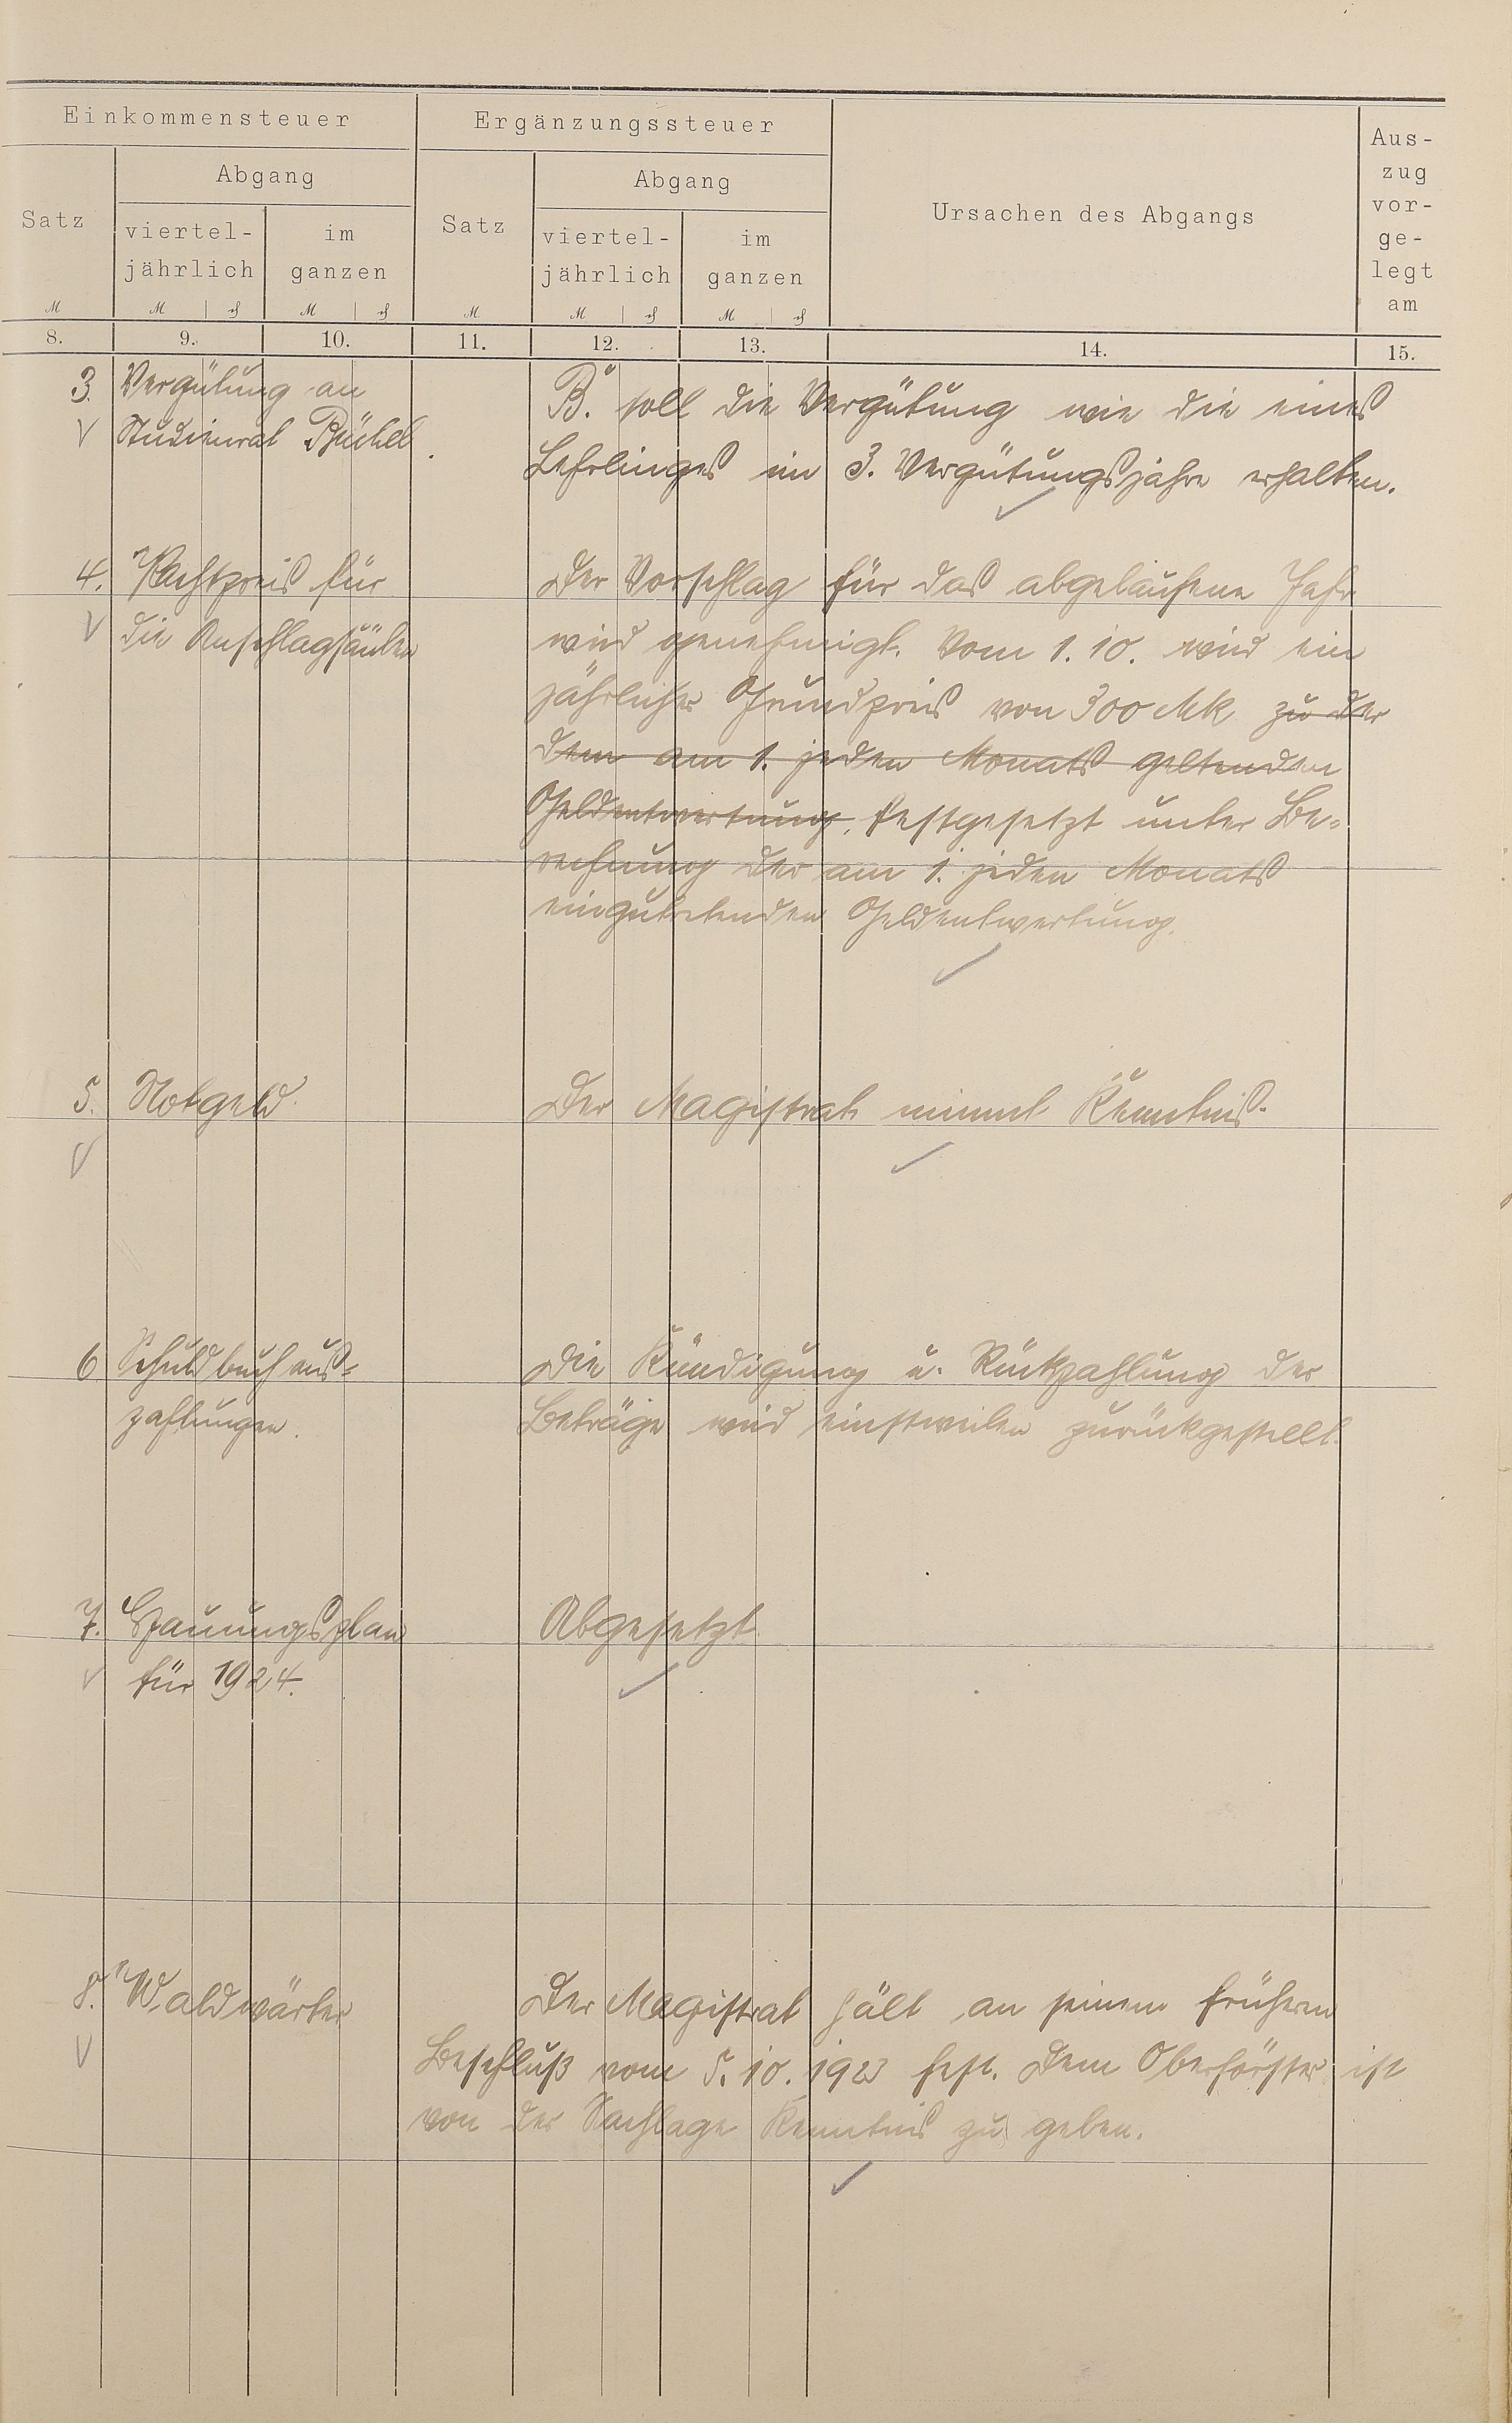 Einkommensteuer
Ergänzungssteuer
Ursachen des Abgangs
Aus-
zug
vor-
ge-
legt
am
Satz
Abgang
viertel-
jährlich
im
ganzen
Satz
Abgang
viertel-
jährlich
im
ganzen
M
M
M
M
M
M
8.
9.
10.
11.
12.
13.
14.
15.
3. Vergütung an
Studienrat Büchel.
B. soll die Vergütung wie die eines
Lehrlinges im 3. Vergütungsjahre erhalten.
4. Pachtpreis für
die Anschlagsäulen
Der Vorschlag für das abgelaufene Jahr
wird genehmigt. Vom 1.10. wird ein
jährlicher Grundpreis von 300 Mk zu der
dem am 1. jeden Monats geltenden
Geldentwertung, festgesetzt unter Be-
rechnung der am 1. jeden Monats
eingutretenden Geldentwertung.
5. Notgeld
Der Magistrat nimmt Kenntnis.
6 Schuldbuchaus-
zahlungen.
Die Kündigung u. Rückzahlung der
Beträge wird einstweilen zurückgestellt.
7. Hauungsplan
für 1924.
Abgesetzt
8. Waldwärter
Der Magistrat hält an seinem früheren
Beschluß vom 5.10.1923 fest. Dem Oberförster ist
von der Sachlage Kenntnis zu geben.